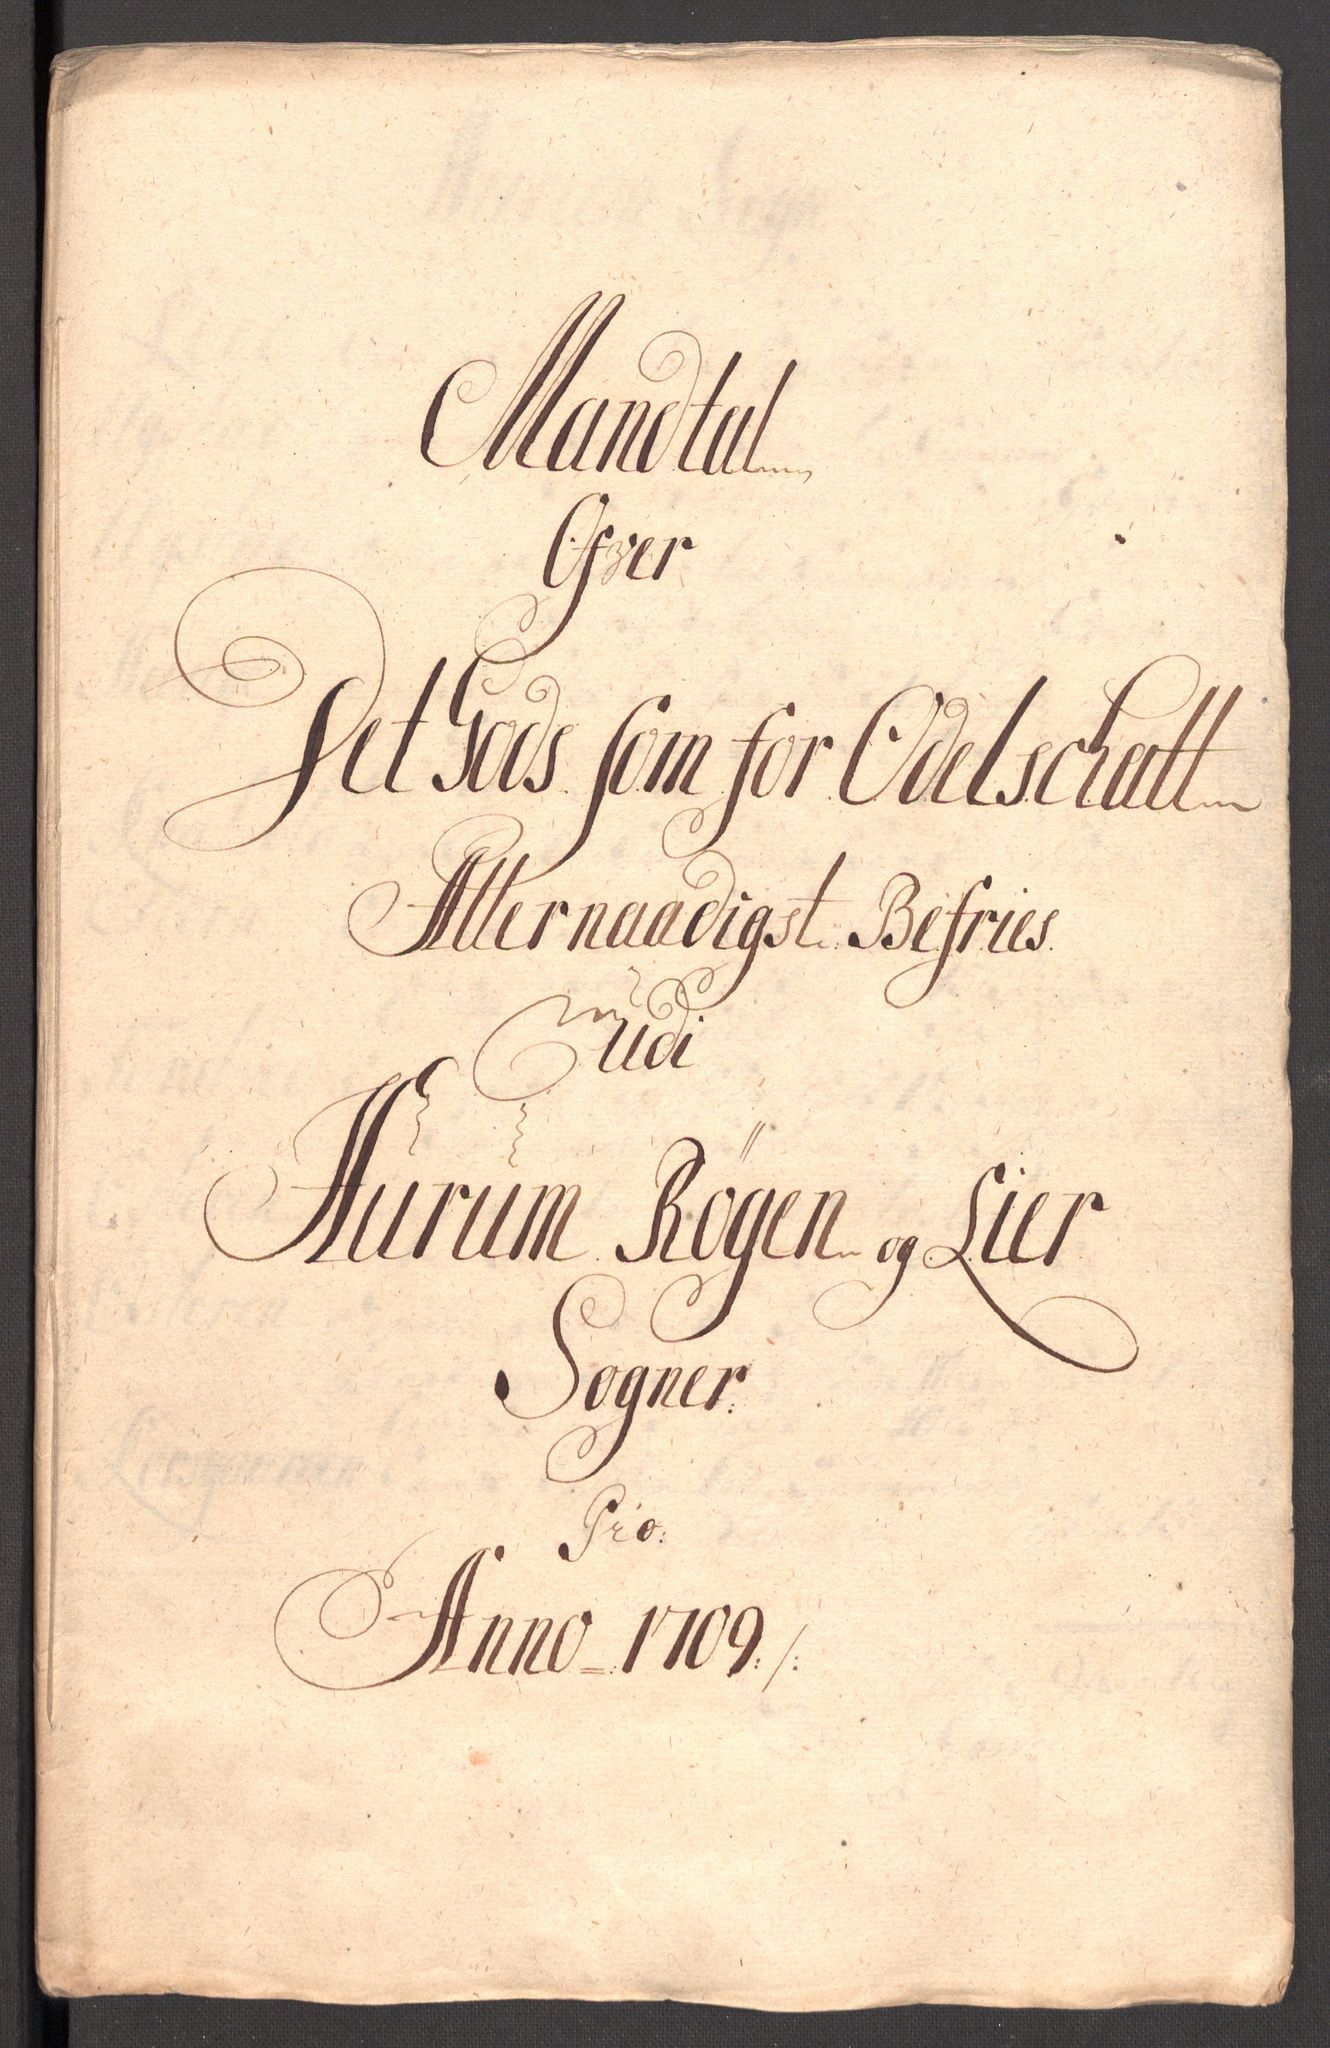 Mandtal
Ofver
Det Gods som for Odelschatt
Allernaadigst Befries
udi
Hurum Røgen og Lier
Sogner
Pro:
Anno 1709./.